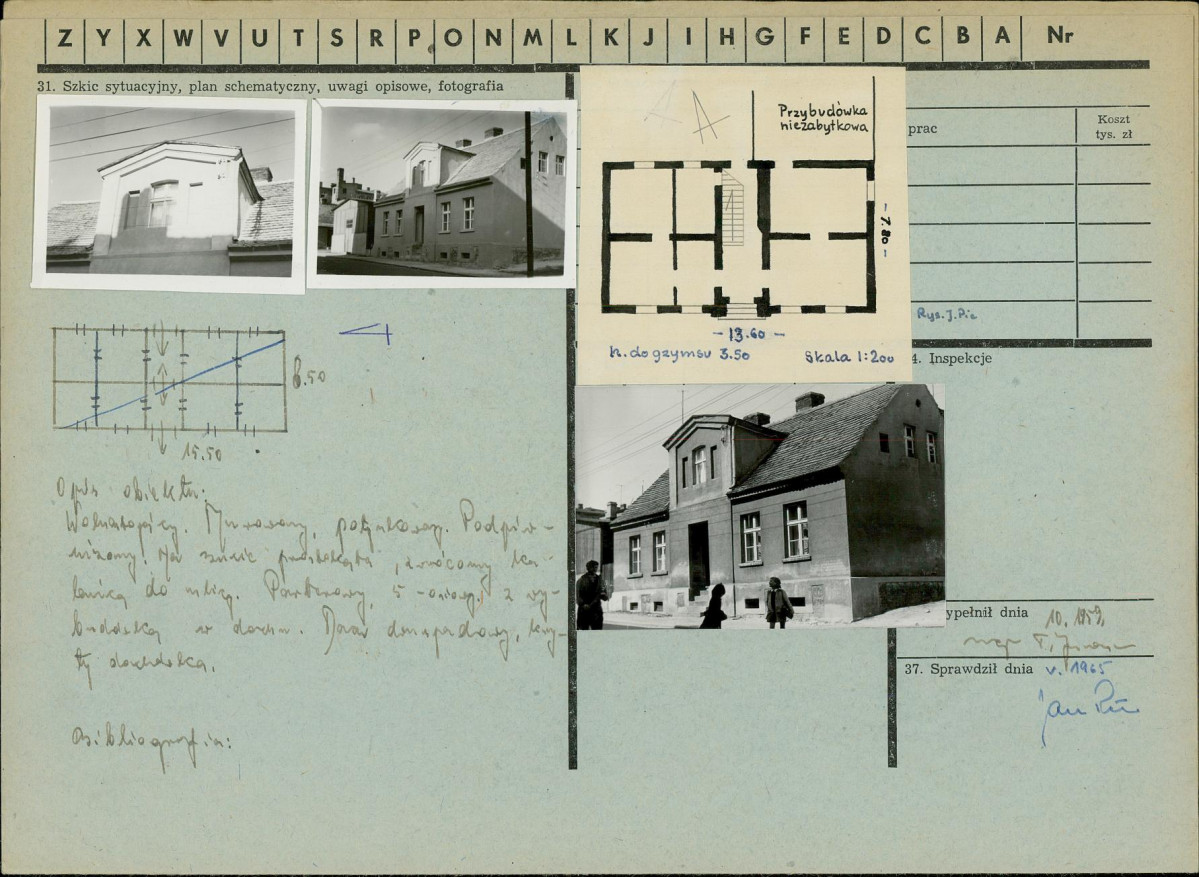 Z Y X W V U T S R P O N M L K J I H G F E D C B A Nr
31. Szkic sytuacyjny, plan schematyczny, uwagi opisowe, fotografia
Przybudówka
niezabytkowa
- 7.80 -
- 13.60 -
h. do gzymsu 3.50 Skala 1:200
prac
Koszt
tys. zł
Rys. J. Pic
4. Inspekcje
8.50
15.50
Opis obiektu:
Wolnostojący. Murowany, potynkowany. Podpiw-
niczony. Na rzucie prostokąta, zwrócony ka-
lenicą do ulicy. Parterowy, 5-osiowy z wy-
budówką w dachu. Dach dwuspadowy, kry-
ty dachówką.
Bibliografia:
ypełnił dnia 10. 1959.
mgr T.
37. Sprawdził dnia V. 1965
Jan